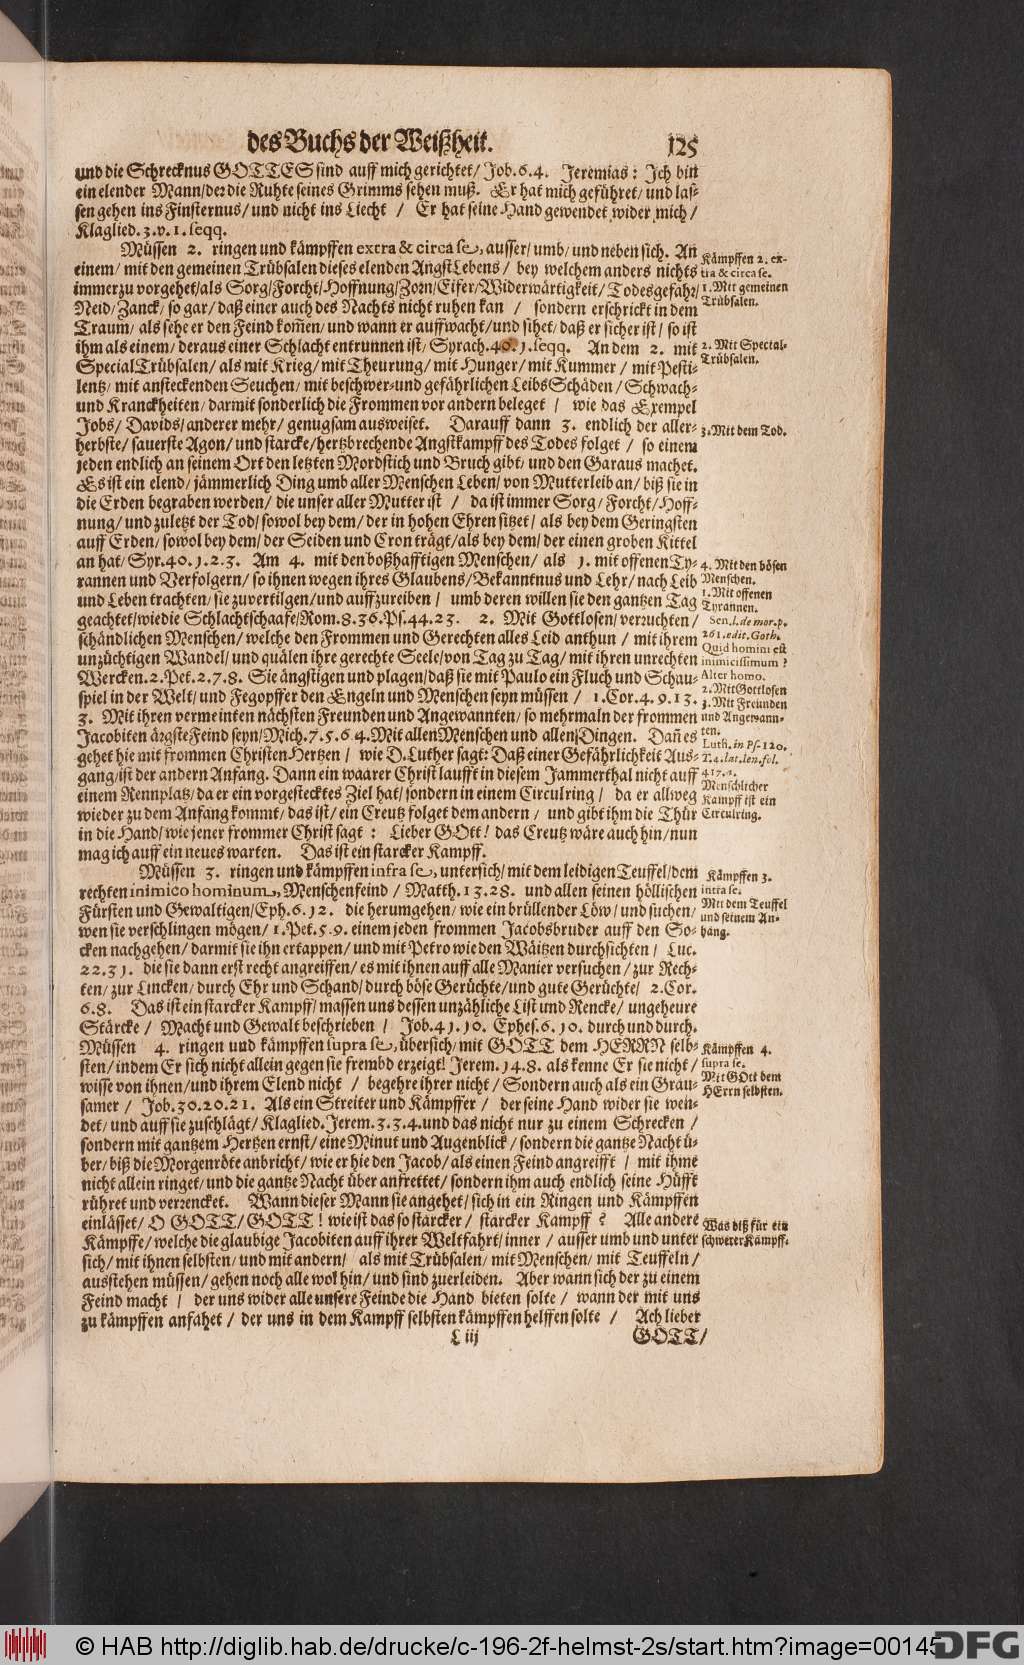 des Buchs der Weißheit. 125
und die Schrecknus GOTTES sind auff mich gerichtet/ Job.6.4. Jeremias: Ich bin
ein elender Mann/der die Ruhte seines Grimms sehen muß. Er hat mich geführet/ und las-
sen gehen ins Finsternus/ und nicht ins Liecht / Er hat seine Hand gewendet wider mich/
Klaglied.3.v.1.seqq.
Müssen 2. ringen und kämpffen extra & circa se, ausser/ umb/ und neben sich. An
einem/ mit den gemeinen Trübsalen dieses elenden AngstLebens/ bey welchem anders nichts
immerzu vorgehet/als Sorg/Forcht/Hoffnung/Zorn/Eifer/Widerwärtigkeit/Todesgefahr/
Neid/Zanck/ so gar/ daß einer auch des Nachts nicht ruhen kan / sondern erschrickt in dem
Traum/ als sehe er den Feind kom̃en/ und wann er auffwacht/und sihet/ daß er sicher ist/ so ist
ihm als einem/ der aus einer Schlacht entrunnen ist/ Syrach.40.1.seqq. An dem 2. mit
SpecialTrübsalen/ als mit Krieg/ mit Theurung/ mit Hunger/ mit Kummer / mit Pesti-
lentz/ mit ansteckenden Seuchen/ mit beschwer-und gefährlichen LeibsSchäden/ Schwach-
und Kranckheiten/ darmit sonderlich die Frommen vor andern beleget / wie das Exempel
Jobs/ Davids/ anderer mehr/ genugsam ausweiset. Darauff dann 3. endlich der aller-
herbste/ sauerste Agon/ und starcke/ hertzbrechende Angstkampff des Todes folget / so einem
jeden endlich an seinem Ort den letzten Mordstich und Bruch gibt/ und den Garaus machet.
Es ist ein elend/ jämmerlich Ding umb aller Menschen Leben/ von Mutterleib an/ biß sie in
die Erden begraben werden/ die unser aller Mutter ist / da ist immer Sorg/ Forcht/ Hoff-
nung/ und zuletzt der Tod/ sowol bey dem/ der in hohen Ehren sitzet/ als bey dem Geringsten
auff Erden/ sowol bey dem/ der Seiden und Cron trägt/als bey dem/ der einen groben Kittel
an hat/ Syr.40.1.2.3. Am 4. mit den boßhafftigen Menschen/ als 1. mit offenen Ty-
rannen und Verfolgern/ so ihnen wegen ihres Glaubens/ Bekanntnus und Lehr/ nach Leib
und Leben trachten/ sie zuvertilgen/ und auffzureiben / umb deren willen sie den gantzen Tag
geachtet/ wie die Schlachtschaafe/Rom.8.36.Ps.44.23. 2. Mit Gottlosen/ verruchten /
schändlichen Menschen/ welche den Frommen und Gerechten alles Leid anthun / mit ihrem
unzüchtigen Wandel/ und quälen ihre gerechte Seele/ von Tag zu Tag/ mit ihren unrechten
Wercken.2.Pet.2.7.8. Sie ängstigen und plagen/ daß sie mit Paulo ein Fluch und Schau-
spiel in der Welt/ und Fegopffer den Engeln und Menschen seyn müssen / 1.Cor.4.9.13.
3. Mit ihren vermeinten nächsten Freunden und Angewannten/ so mehrmaln der frommen
Jacobiten ärgste Feind seyn/ Mich.7.5.6 4. Mit allen Menschen und allen Dingen. Dañ es
gehet hie mit frommen ChristenHertzen / wie D. Luther sagt: Daß einer Gefährlichkeit Aus-
gang/ ist der andern Anfang. Dann ein waarer Christ laufft in diesem Jammerthal nicht auff
einem Rennplatz/ da er ein vorgestecktes Ziel hat/ sondern in einem Circulring / da er allweg
wieder zu dem Anfang kommt/ das ist/ ein Creutz folget dem andern / und gibt ihm die Thür
in die Hand/ wie jener frommer Christ sagt : Lieber GOtt! das Creutz wäre auch hin/ nun
mag ich auff ein neues warten. Das ist ein starcker Kampff.
Müssen 3. ringen und kämpffen infra se, untersich/ mit dem leidigen Teuffel/ dem
rechten inimico hominum, Menschenfeind / Matth.13.28. und allen seinen höllischen
Fürsten und Gewaltigen/Eph.6.12. die herumgehen/ wie ein brüllender Löw/ und suchen/
wen sie verschlingen mögen/ 1.Pet.5.9. einem jeden frommen Jacobsbruder auff den So-
cken nachgehen/ darmit sie ihn ertappen/ und mit Petro wie den Wäitzen durchsichten / Luc.
22.31. die sie dann erst recht angreiffen/ es mit ihnen auff alle Manier versuchen/ zur Rech-
ten/ zur Lincken/ durch Ehr und Schand/ durch böse Gerüchte/ und gute Gerüchte/ 2.Cor.
6.8. Das ist ein starcker Kampff/ massen uns dessen unzähliche List und Rencke/ ungeheure
Stärcke / Macht und Gewalt beschrieben / Job.41.10. Ephes.6.10. durch und durch.
Müssen 4. ringen und kämpffen supra se, übersich/ mit GOTT dem HERRN selb-
sten/ indem Er sich nicht allein gegen sie frembd erzeigt! Jerem.14.8. als kenne Er sie nicht /
wisse von ihnen/ und ihrem Elend nicht / begehre ihrer nicht/ Sondern auch als ein Grau-
samer / Job.30.20.21. Als ein Streiter und Kämpffer / der seine Hand wider sie wen-
det/ und auff sie zuschlägt/ Klaglied.Jerem.3.3.4.und das nicht nur zu einem Schrecken /
sondern mit gantzem Hertzen ernst/ eine Minut und Augenblick/ sondern die gantze Nacht ü-
ber/ biß die Morgenröte anbricht/ wie er hie den Jacob/ als einen Feind angreifft / mit ihme
nicht allein ringet/ und die gantze Nacht über anfrettet/ sondern ihm auch endlich seine Hüfft
rühret und verrencket. Wann dieser Mann sie angehet/ sich in ein Ringen und Kämpffen
einlässet/ O GOTT/ GOTT! wie ist das so starcker/ starcker Kampff ? Alle andere
Kämpffe/ welche die glaubige Jacobiten auff ihrer Weltfahrt/ inner / ausser umb und unter
sich/ mit ihnen selbsten/ und mit andern/ als mit Trübsalen/ mit Menschen/ mit Teuffeln /
ausstehen müssen/ gehen noch alle wol hin/ und sind zuerleiden. Aber wann sich der zu einem
Feind macht / der uns wider alle unsere Feinde die Hand bieten solte / wann der mit uns
zu kämpffen anfahet / der uns in dem Kampff selbsten kämpffen helffen solte / Ach lieber
L iij GOTT/
Kämpffen 2. ex-
tra & circa se.
1. Mit gemeinen
Trübsalen.
2. Mit Special-
Trübsalen.
3. Mit dem Tod.
4. Mit den bösen
Menschen.
1. Mit offenen
Tyrannen.
Sen. l. de mor. p.
261. edit. Goth.
Quid homini est
inimicissimum ?
Alter homo.
2. Mit Gottlosen
3. Mit Freunden
und Angewann-
ten.
Luth. in Ps. 120.
T. 4. lat. Jen. fol.
417. a.
Menschlicher
Kampff ist ein
Circulring.
Kämpffen 3.
infra se.
Mit dem Teuffel
und seinem An-
hang.
Kämpffen 4.
supra se.
Mit GOtt dem
HErrn selbsten.
Was diß für ein
schwerer Kampff.
© HAB http://diglib.hab.de/drucke/c-196-2f-helmst-2s/start.htm?image=00145
DFG